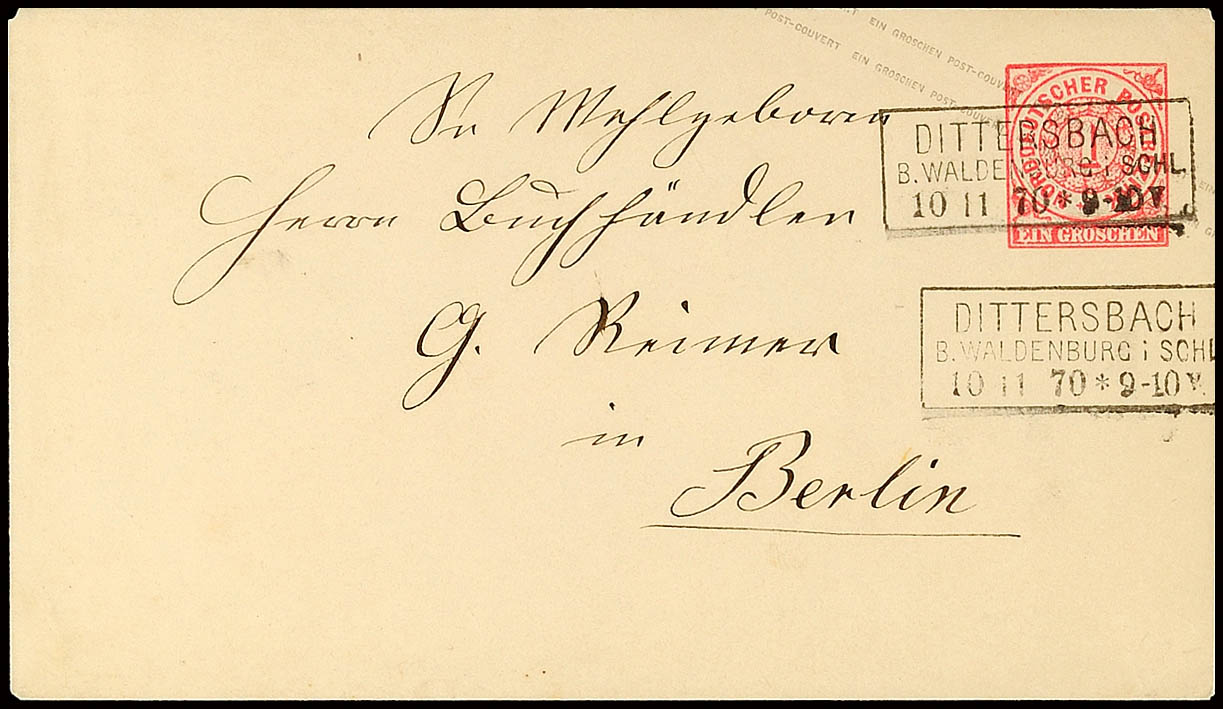 EIN GROSCHEN POST-COUVERT
POST-COUVERT EIN GROSCHEN POST-COUVERT
NORDDEUTSCHER POSTBEZIRK
1
EIN GROSCHEN
DITTERSBACH
B. WALDENBURG i SCHL.
10 11 70 * 9-10 V
Sr Wohlgeboren
Herrn Buchhändler
G. Reimer
in
Berlin
DITTERSBACH
B. WALDENBURG i SCHL
10 11 70 * 9-10 V.